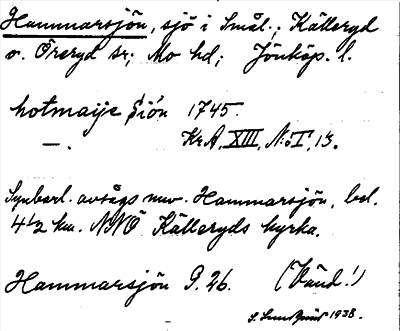 Hammarsjön, sjö i Smål.; Källeryd
o. Öreryd sr; Mo hd; Jönköp. l.
hotmaije Siön 1745.
—. KrA, XIII, N:o I, 13.
Synbarl. avsågs nuv. Hammarsjön, bel.
4 1/2 km. NNÖ Källeryds kyrka.
Hammarsjön G. 26. (Vänd!)
1938.